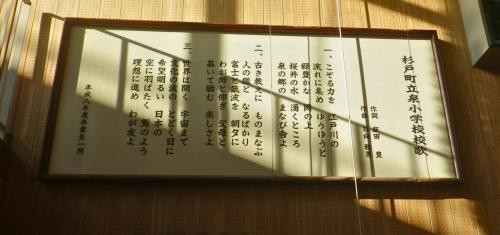 杉戸町立泉小学校校歌
作詞
豊
作曲
一、こぞる力を 江戸川の
流れに集め ゆうゆうと
緑豊かな 岡の上
桜井の水 湧くところ
泉の郷の まなび舎よ
二、古き教えに ものまなぶ
人の鑑と なるばかり
富士と筑波を 朝夕に
わが師と仰ぎ 父母と
慕いて励む 楽しさよ
三、世界は開く 宇宙まで
文化の波の とどく日に
希望明るい 日本の
空に羽ばたく 鷲のよう
理想に進め わが友よ
平成八年度卒業生一同